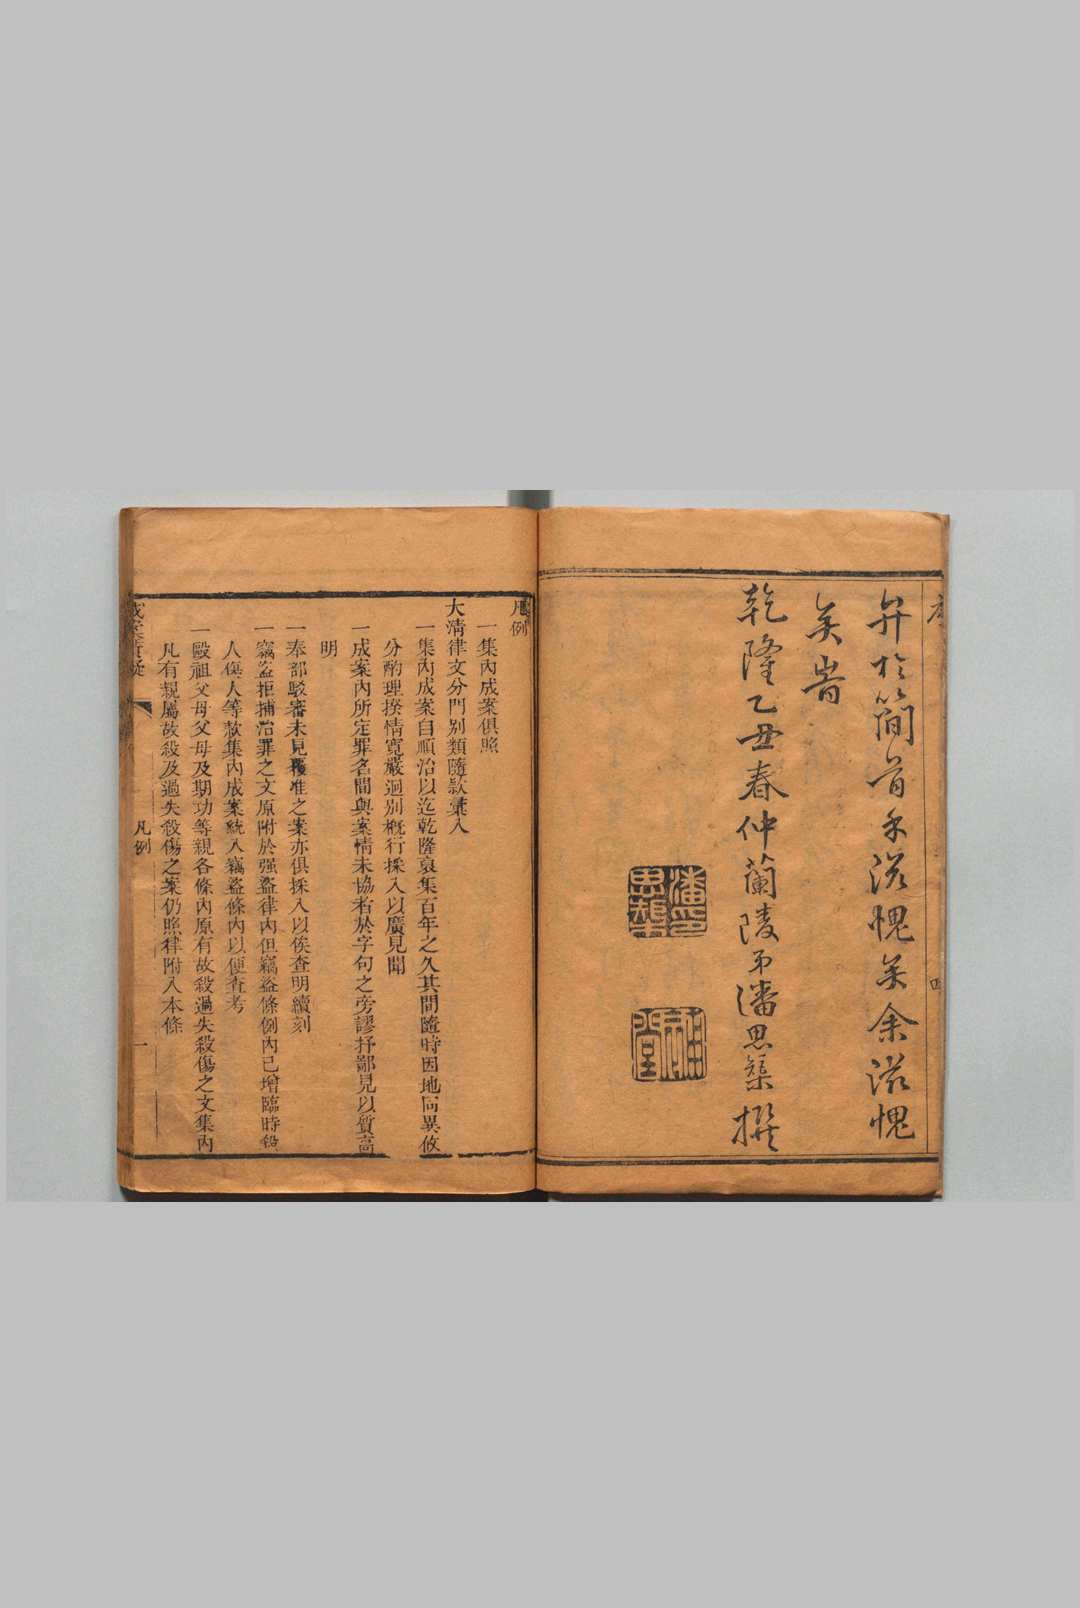 弁於簡首矣滋愧矣余滋愧
矣旹
乾隆乙丑春仲蘭陵弟潘思榘撰
潘印思榘
補堂
凡例
一集內成案俱照
大清律文分門別類隨款彙入
一集內成案自順治以迄乾隆裒集百年之久其間隨時因地同異攸
分酌理揆情寬嚴迥別槪行採入以廣見聞
一成案內所定罪名間與案情未協者於字句之旁謬抒鄙見以質高
明
一奉部駁審未見覆准之案亦俱採入以俟查明續刻
一竊盜拒捕治罪之文原附於强盜律內但竊盜條例內已增臨時殺
人傷人等款集內成案統入竊盜條內以便查考
一毆祖父母父母及期功等親各條內原有故殺過失殺傷之文集內
凡有親屬故殺及過失殺傷之案仍照律附入本條
成案質疑
凡例
一